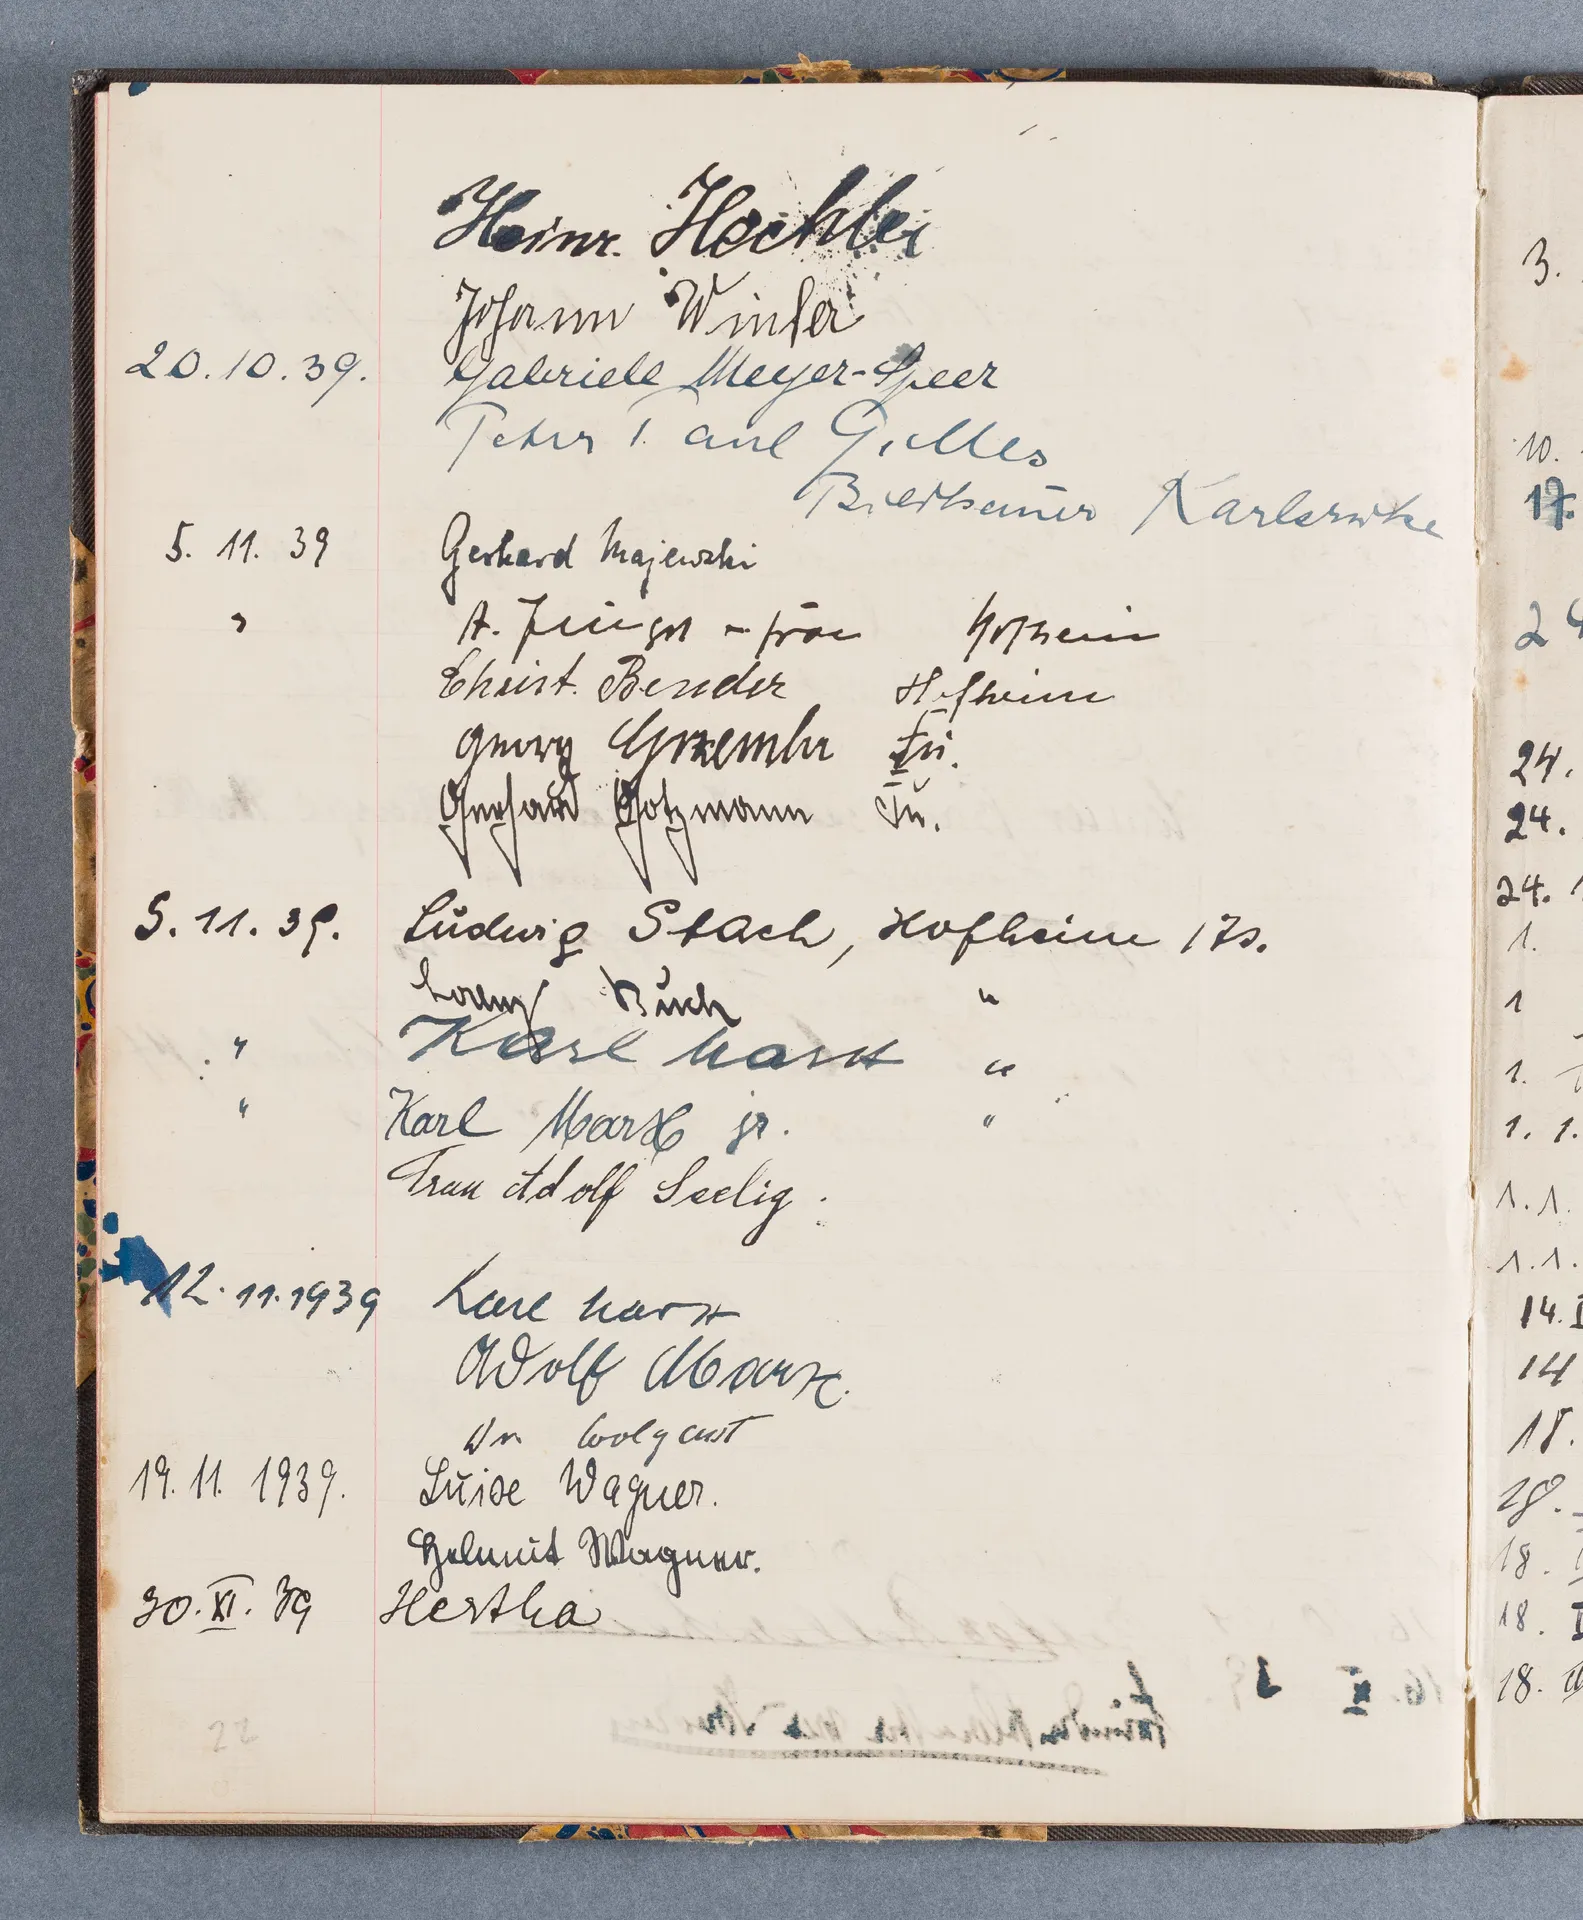 Heinr. Hechler
Johann Winter
20.10.39. Gabriele Meyer-Speer
Peter Paul Gilles
Bildhauer Karlsruhe
5. 11. 39 Gerhard Majewski
" A. Hofheim
Christ. Bender Hofheim
Georg
Gerhard Gotzmann
5. 11. 39. Ludwig Stach, Hofheim
Lorenz Buch "
" Karl Marx "
" Karl Marx jr. "
Frau Adolf Seelig.
12.11.1939 Karl Marx
Adolf Marx.
Wolgast
19. 11. 1939. Luise Wagner.
Helmut Wagner.
30. XI. 39 Hertha
22
3.
10.
17.
24.
24.
24.
1.
1
1.
1. 1.
1.1.
1.1.
14.
14
18.
18.
18.
18.